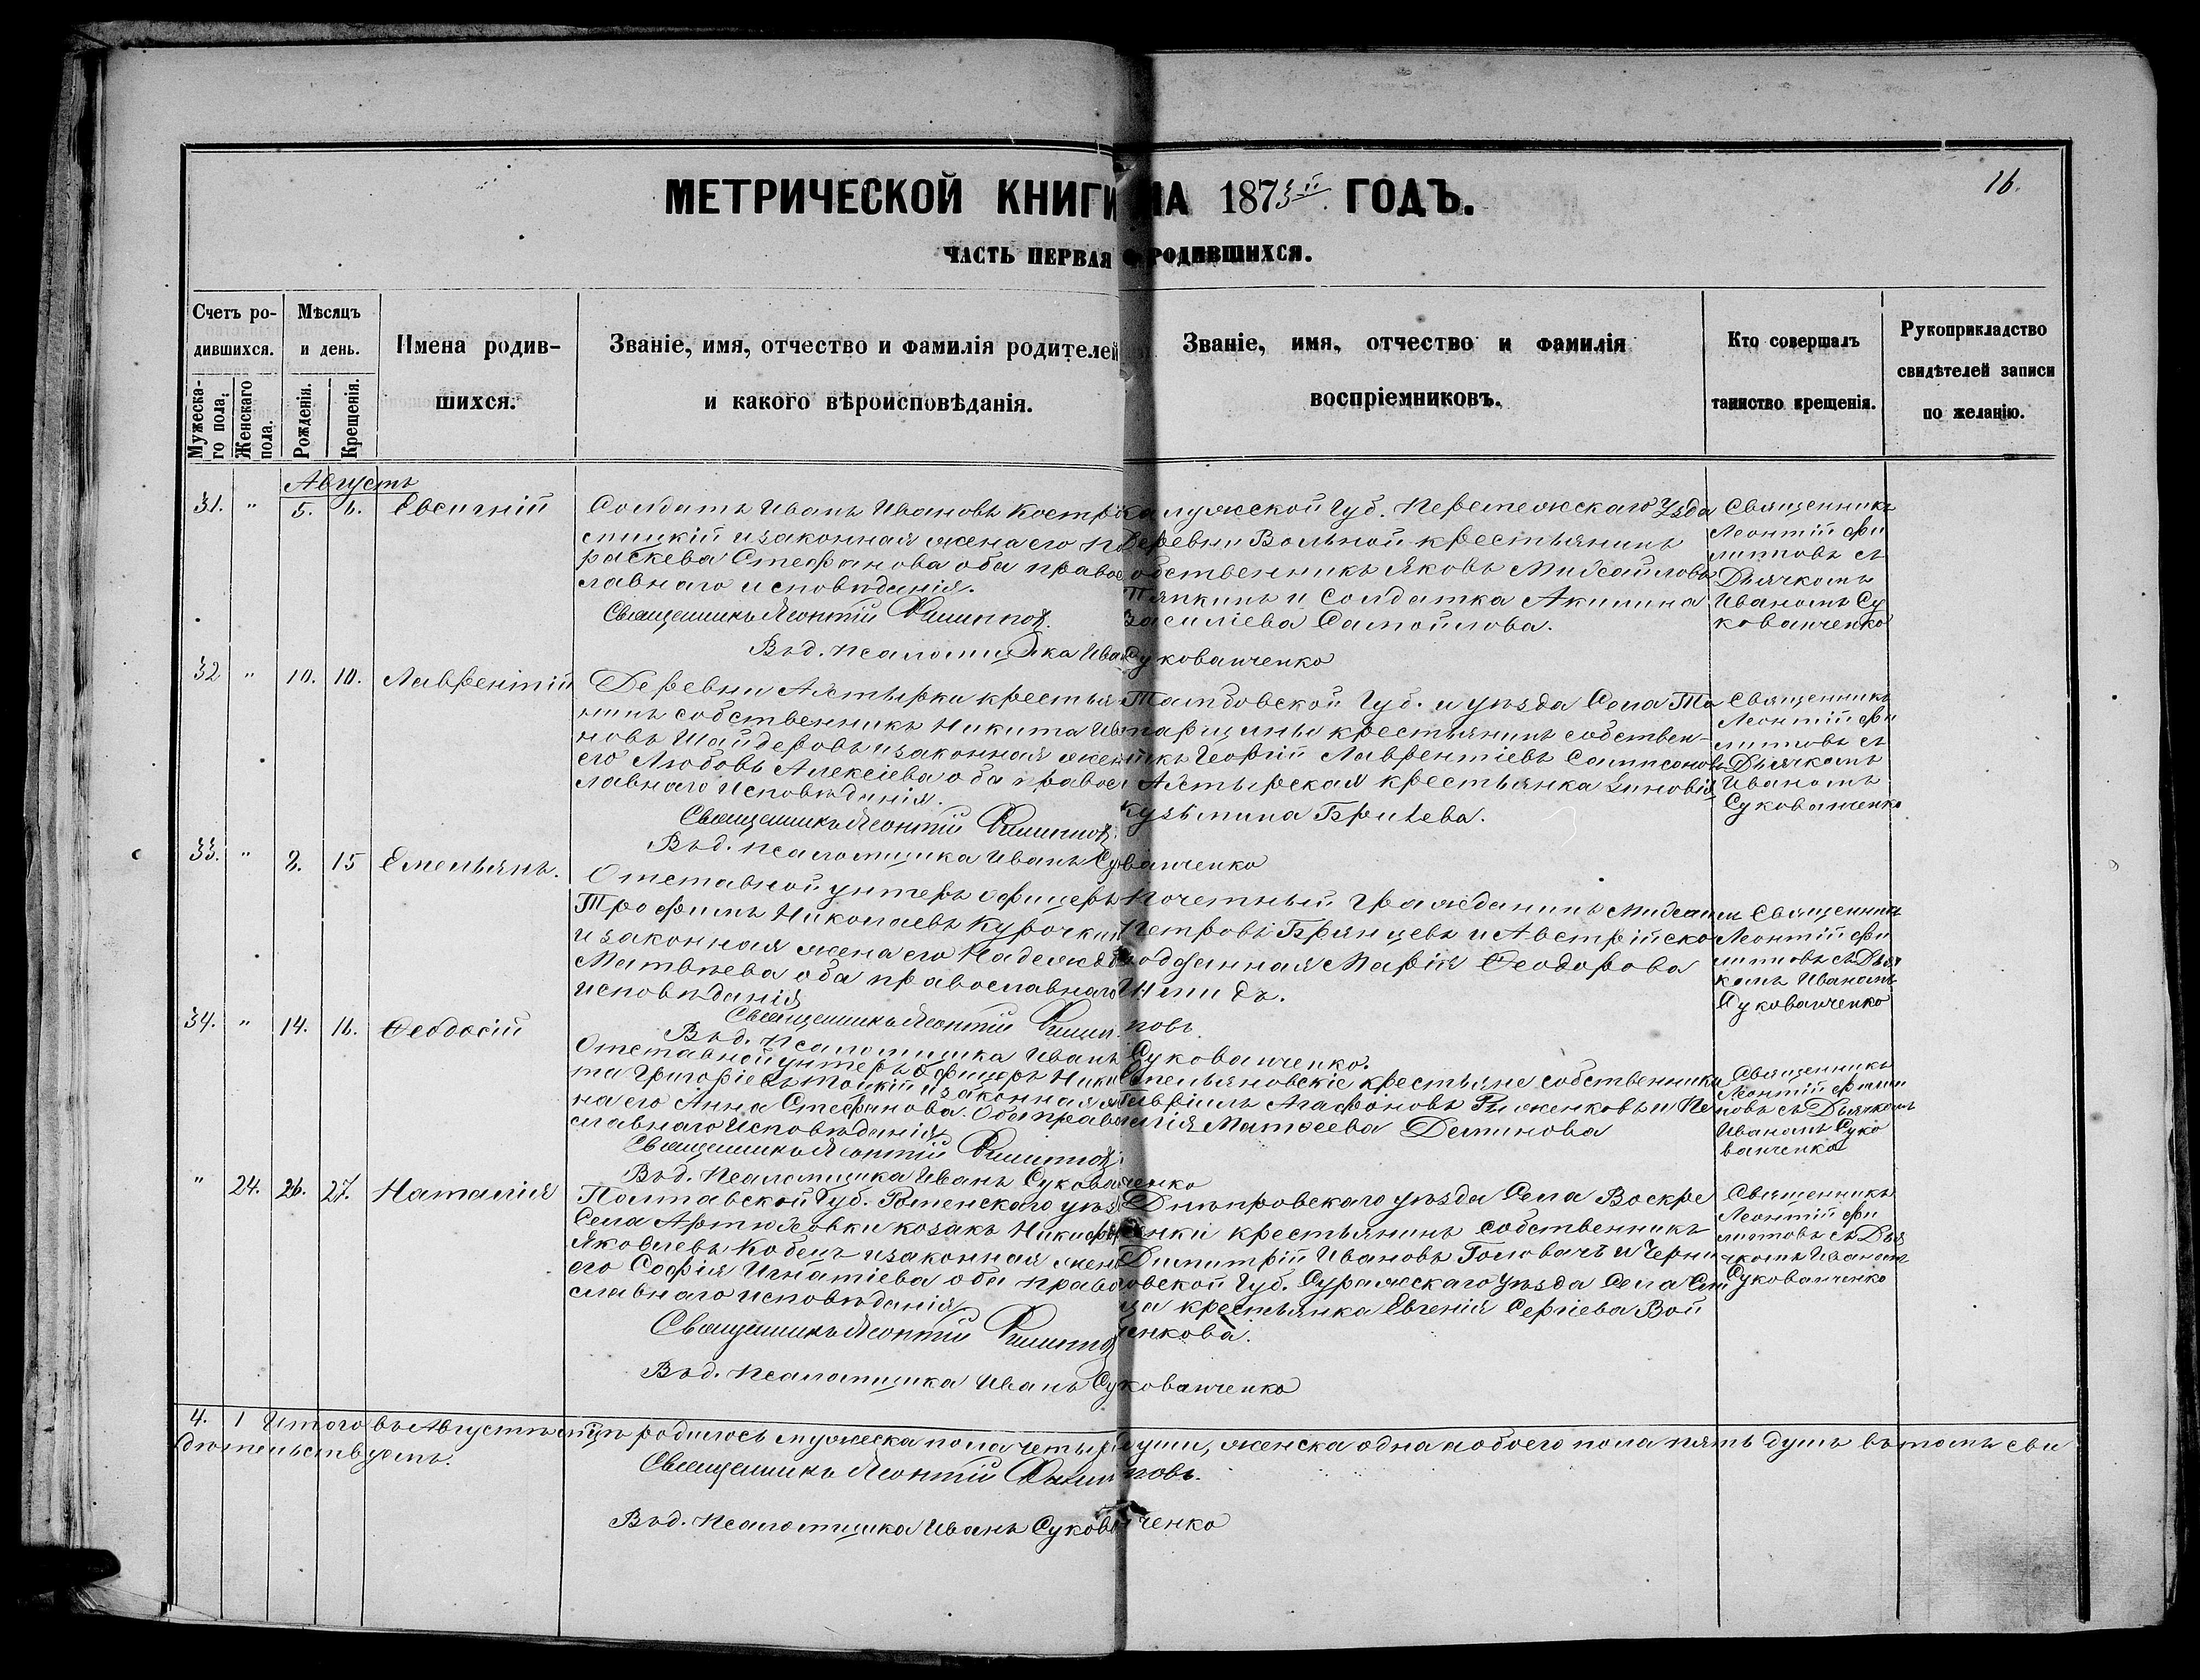 16.
МЕТРИЧЕСКОЙ КНИГИ НА 1873й ГОДЪ.
ЧАСТЬ ПЕРВАЯ О РОДИВШИХСЯ.
Счетъ ро-
дившихся.
Мужеска-
го пола.
Женскаго
пола.
Мѣсяцъ
и день.
Рожденія.
Крещенія.
Имена родив-
шихся.
Званіе, имя, отчество и фамилія родителей
и какого вѣроисповѣданія.
Званіе, имя, отчество и фамилія
воспріемниковъ.
Кто совершалъ
таинство крещенія.
Рукоприкладство
свидѣтелей записи
по желанію.
Августъ
31. " 5. 6. Евсигній
Солдатъ Иванъ Ивановъ
и законная жена его
раскева Стефанова оба право
славнаго исповѣданія.
Священникъ Леонтій Филиппов.
Въ д. псаломщика Иван Суковатченко
Калужской Губ. Уѣзда
Деревни Вольной крестьянинъ
собственникъ Яковъ Михайловъ
Тяпкинъ и Солдатка Акилина
Василіева Самойлова.
Священникъ
Леонтій Фи
липповъ съ
Дьячкомъ
Иваномъ Су
кованченко
32 " 10. 10. Лаврентій
Деревни крестья
нинъ собственникъ Никита Ива
новъ Шайдеровъ и законная жена
его Любовь Алексіева оба правос
лавнаго исповѣданія.
Священникъ Леонтій Филиппов.
Въ д. псаломщика Иванъ Сукованченко
Тамбовской Губ. и уѣзда Села Та
тарщины крестьянинъ собствен-
никъ Георгій Лаврентіевъ Сампсоновъ
и крестьянка Зиновія
Кузьмина
Священникъ
Леонтій Фи
липповъ съ
Дьячкомъ
Иваномъ
Сукованченко
33. " 8. 15 Емельянъ.
Отставной унтеръ офицеръ
Трофимъ Николаевъ Курочкин
и законная жена его Надежда
Матвѣева оба православнаго
исповѣданія
Священникъ Леонтій Филипповъ
Въ д. псаломщика Иванъ Сукованченко.
Почетный Гражданинъ Михаилъ
Петровъ Брянцевъ и Австрійско
подданная Марія Феодорова
Священникъ
Леонтій Фи
липповъ съ Дья
комъ Иваномъ
Сукованченко
34. " 14. 16. Феодосій
Отставной унтеръ офицеръ Ники
та Григоріевъ и законная же
на его Анна Стефанова. Оба право
славнаго исповѣданія
Священникъ Леонтій Филиппов.
Въ д. псаломщика Иванъ Сукованченко
Емельяновскіе крестьяне собственники
Гавріилъ Агафоновъ и Пе
лагія Матѳеева Деминова
Священникъ
Леонтій Филип
повъ съ Дьячкомъ
Иваномъ Суко
ванченко
" 24. 26. 27. Наталия
Полтавской Губ. Роменскаго уѣзд
Села Артюховки козакъ Никифор
Яковлевъ Кобецъ и законная жена
его Софія Игнатіева оба право
славнаго исповѣданія
Священникъ Леонтій Филиппов
Въ д. псаломщика Иванъ Сукованченко
Днѣпровскаго уѣзда Села Воскре
сенки крестьянинъ собственникъ
Димитрій Ивановъ Головачъ и Черни
говской Губ. Суражскаго уѣзда Села
крестьянка Евгенія Сергіева Вой
ченкова.
Священникъ
Леонтій Фи
липповъ съ Дья
чкомъ Иваномъ
Сукованченко
4. 1 Итого въ Августѣ мѣсяцѣ родилось мужеска пола четыре души, женска одна а обоего пола пять душъ въ томъ сви
дѣтельствуемъ.
Священникъ Леонтій Филипповъ.
Въ д. псаломщика Иванъ Сукованченко